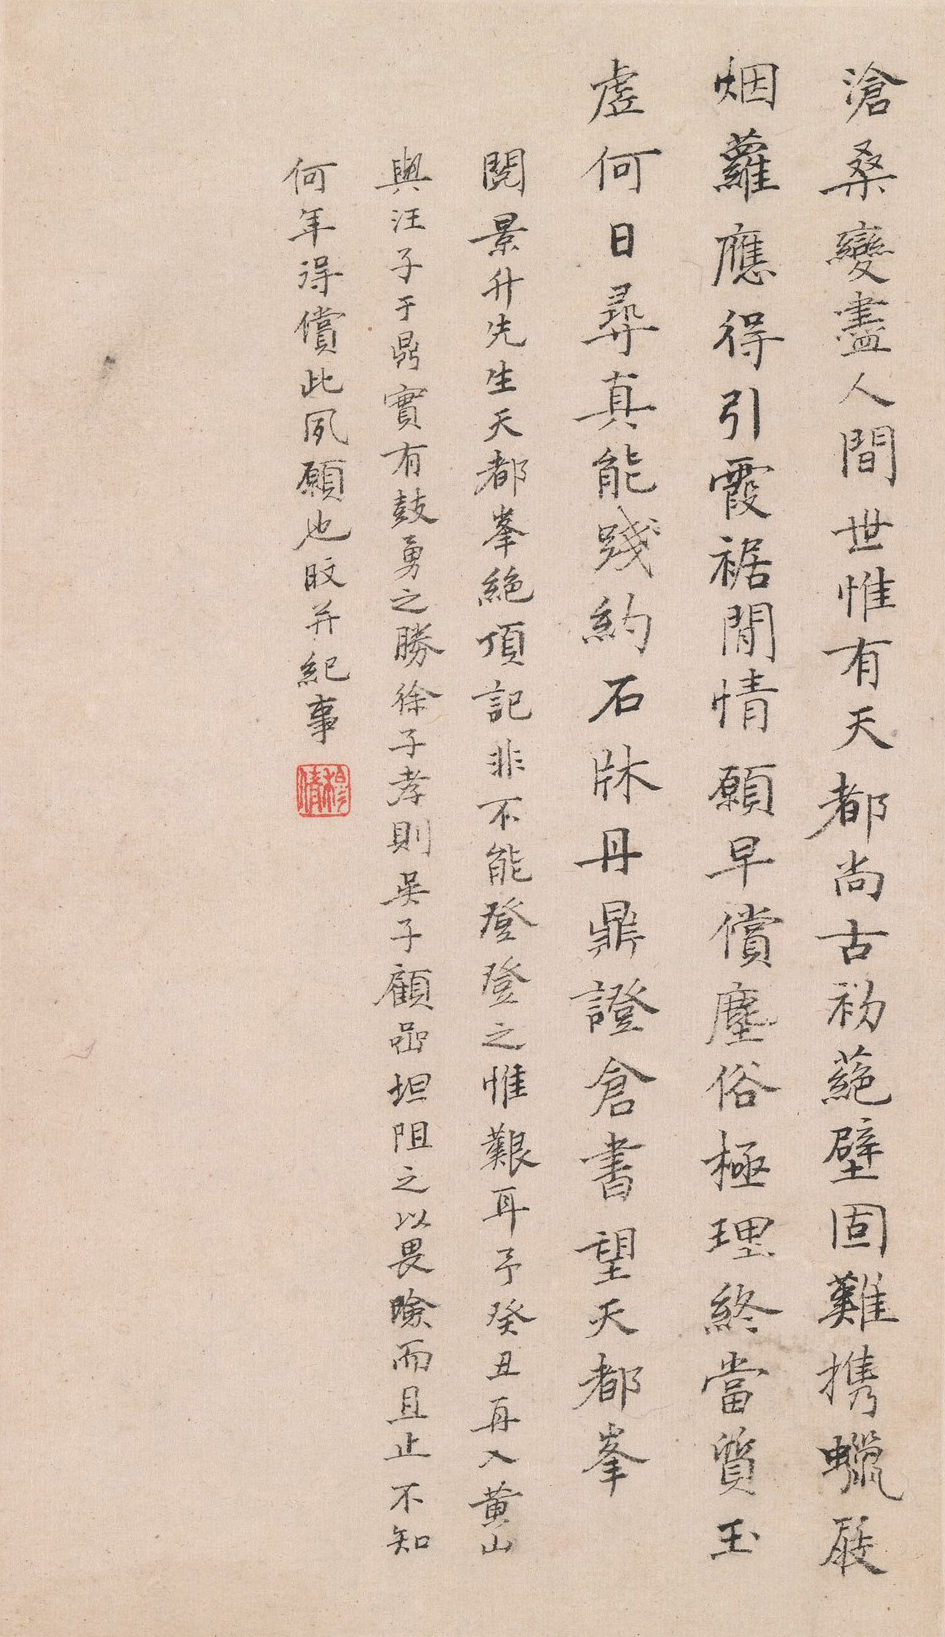 滄桑變盡人間世惟有天都尚古初蒓壁固難携蠟屐
烟蘿應得引霞裾閒情願早償塵俗極理終當質玉
虛何日尋真能踐約石牀丹鼎證倉書望天都峯
閱景升先生天都峯絕頂記非不能登登之惟艱耳予癸丑再入黄山
與汪子于鼎實有鼓勇之勝徐子孝則吳子顧嵒坦阻之以畏險而且止不知
何年得償此夙願也旼并紀事
穆倩